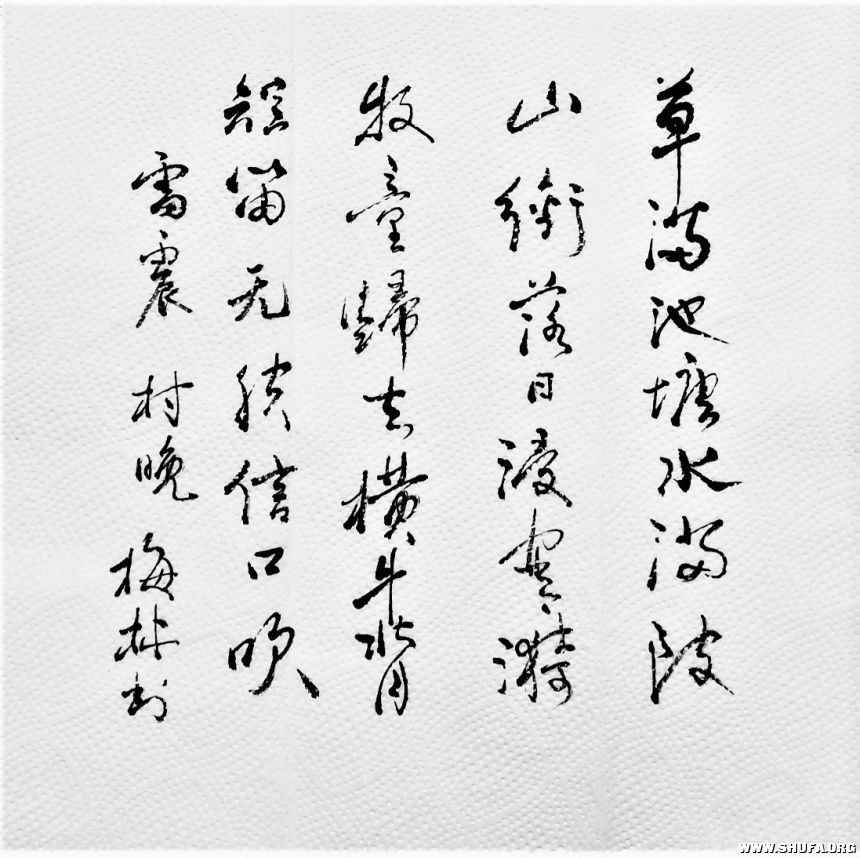 草满池塘水满陂
山衔落日浸寒漪
牧童歸去横牛背
短笛无腔信口吹
雷震 村晚 梅林书
WWW.SHUFA.ORG